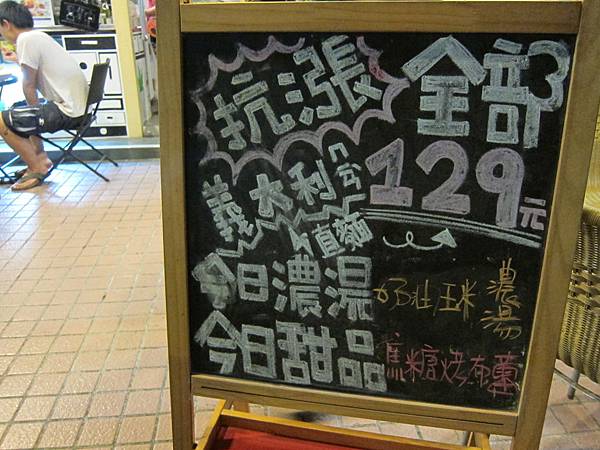 抗漲
全部
129元
義大利
直麵
今日濃湯
玉米濃湯
今日甜品
焦糖烤布蕾